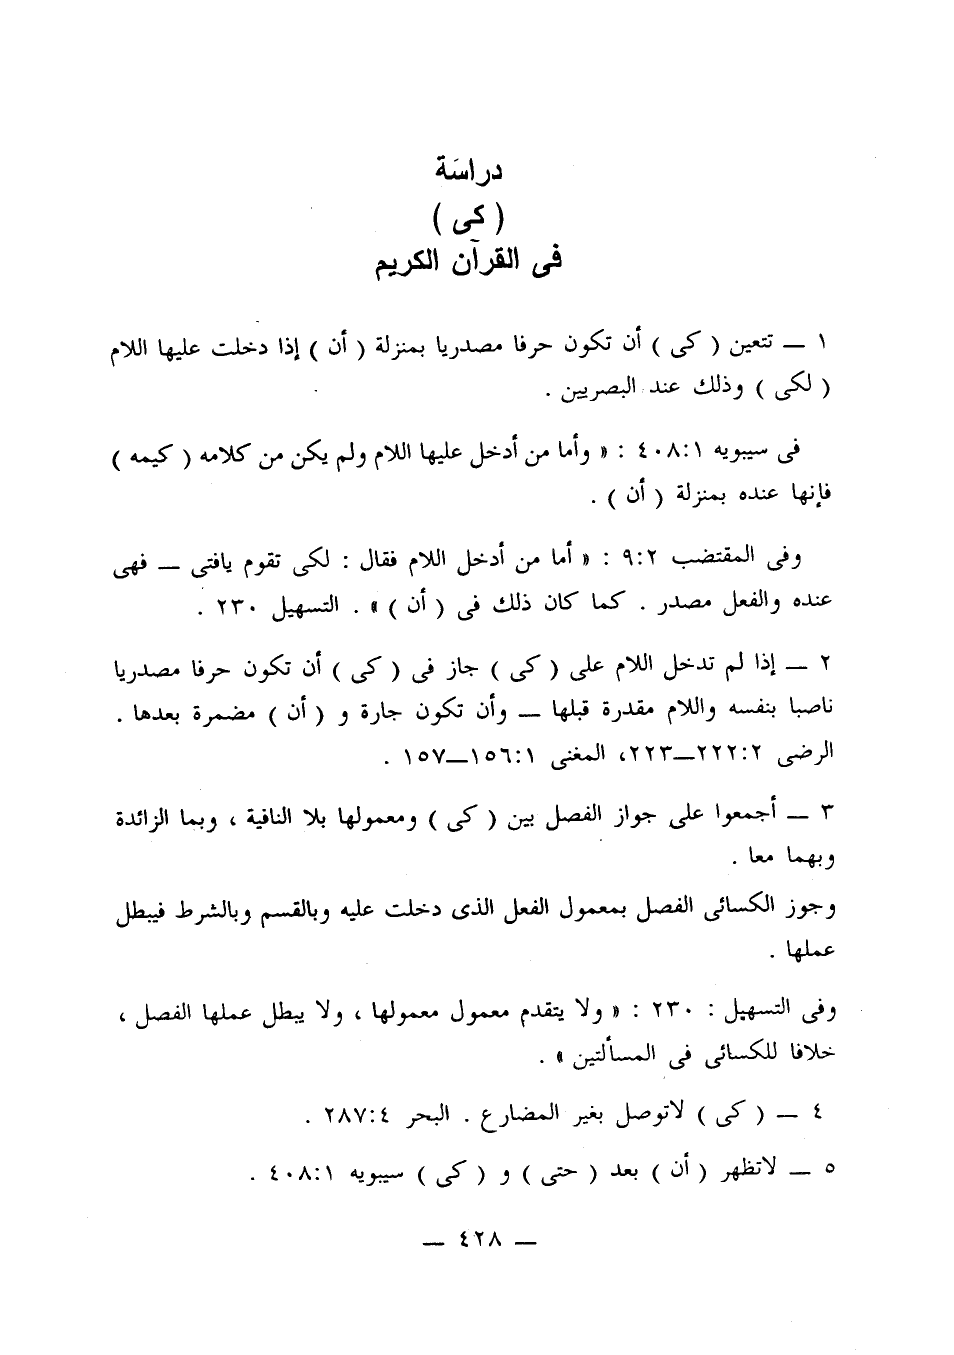 دراسَة
( كى )
فى القرآن الكريم
١ ــ تتعين ( كى ) أن تكون حرفا مصدريا بمنزلة ( أن ) إذا دخلت عليها اللام
( لكى ) وذلك عند البصريين .
فى سيبويه ٤٠٨:١ : « وأما من أدخل عليها اللام ولم يكن من كلامه ( كيمه )
فإنها عنده بمنزلة ( أن ) .
وفى المقتضب ٩:٢ : « أما من أدخل اللام فقال : لكى تقوم يافتى ــ فهى
عنده والفعل مصدر . كما كان ذلك فى ( أن ) » . التسهيل ٢٣٠ .
٢ ــ إذا لم تدخل اللام على ( كى ) جاز فى ( كى ) أن تكون حرفا مصدريا
ناصبا بنفسه واللام مقدرة قبلها ــ وأن تكون جارة و ( أن ) مضمرة بعدها .
الرضى ٢٢٢:٢ــ٢٢٣، المغنى ١٥٦:١ــ١٥٧ .
٣ ــ أجمعوا على جواز الفصل بين ( كى ) ومعمولها بلا النافية ، وبما الزائدة
وبهما معا .
وجوز الكسائى الفصل بمعمول الفعل الذى دخلت عليه وبالقسم وبالشرط فيبطل
عملها .
وفى التسهيل : ٢٣٠ : « ولا يتقدم معمول معمولها ، ولا يبطل عملها الفصل ،
خلافا للكسائى فى المسألتين » .
٤ ــ ( كى ) لاتوصل بغير المضارع . البحر ٢٨٧:٤ .
٥ ــ لاتظهر ( أن ) بعد ( حتى ) و ( كى ) سيبويه ٤٠٨:١ .
ــ ٤٢٨ ــ